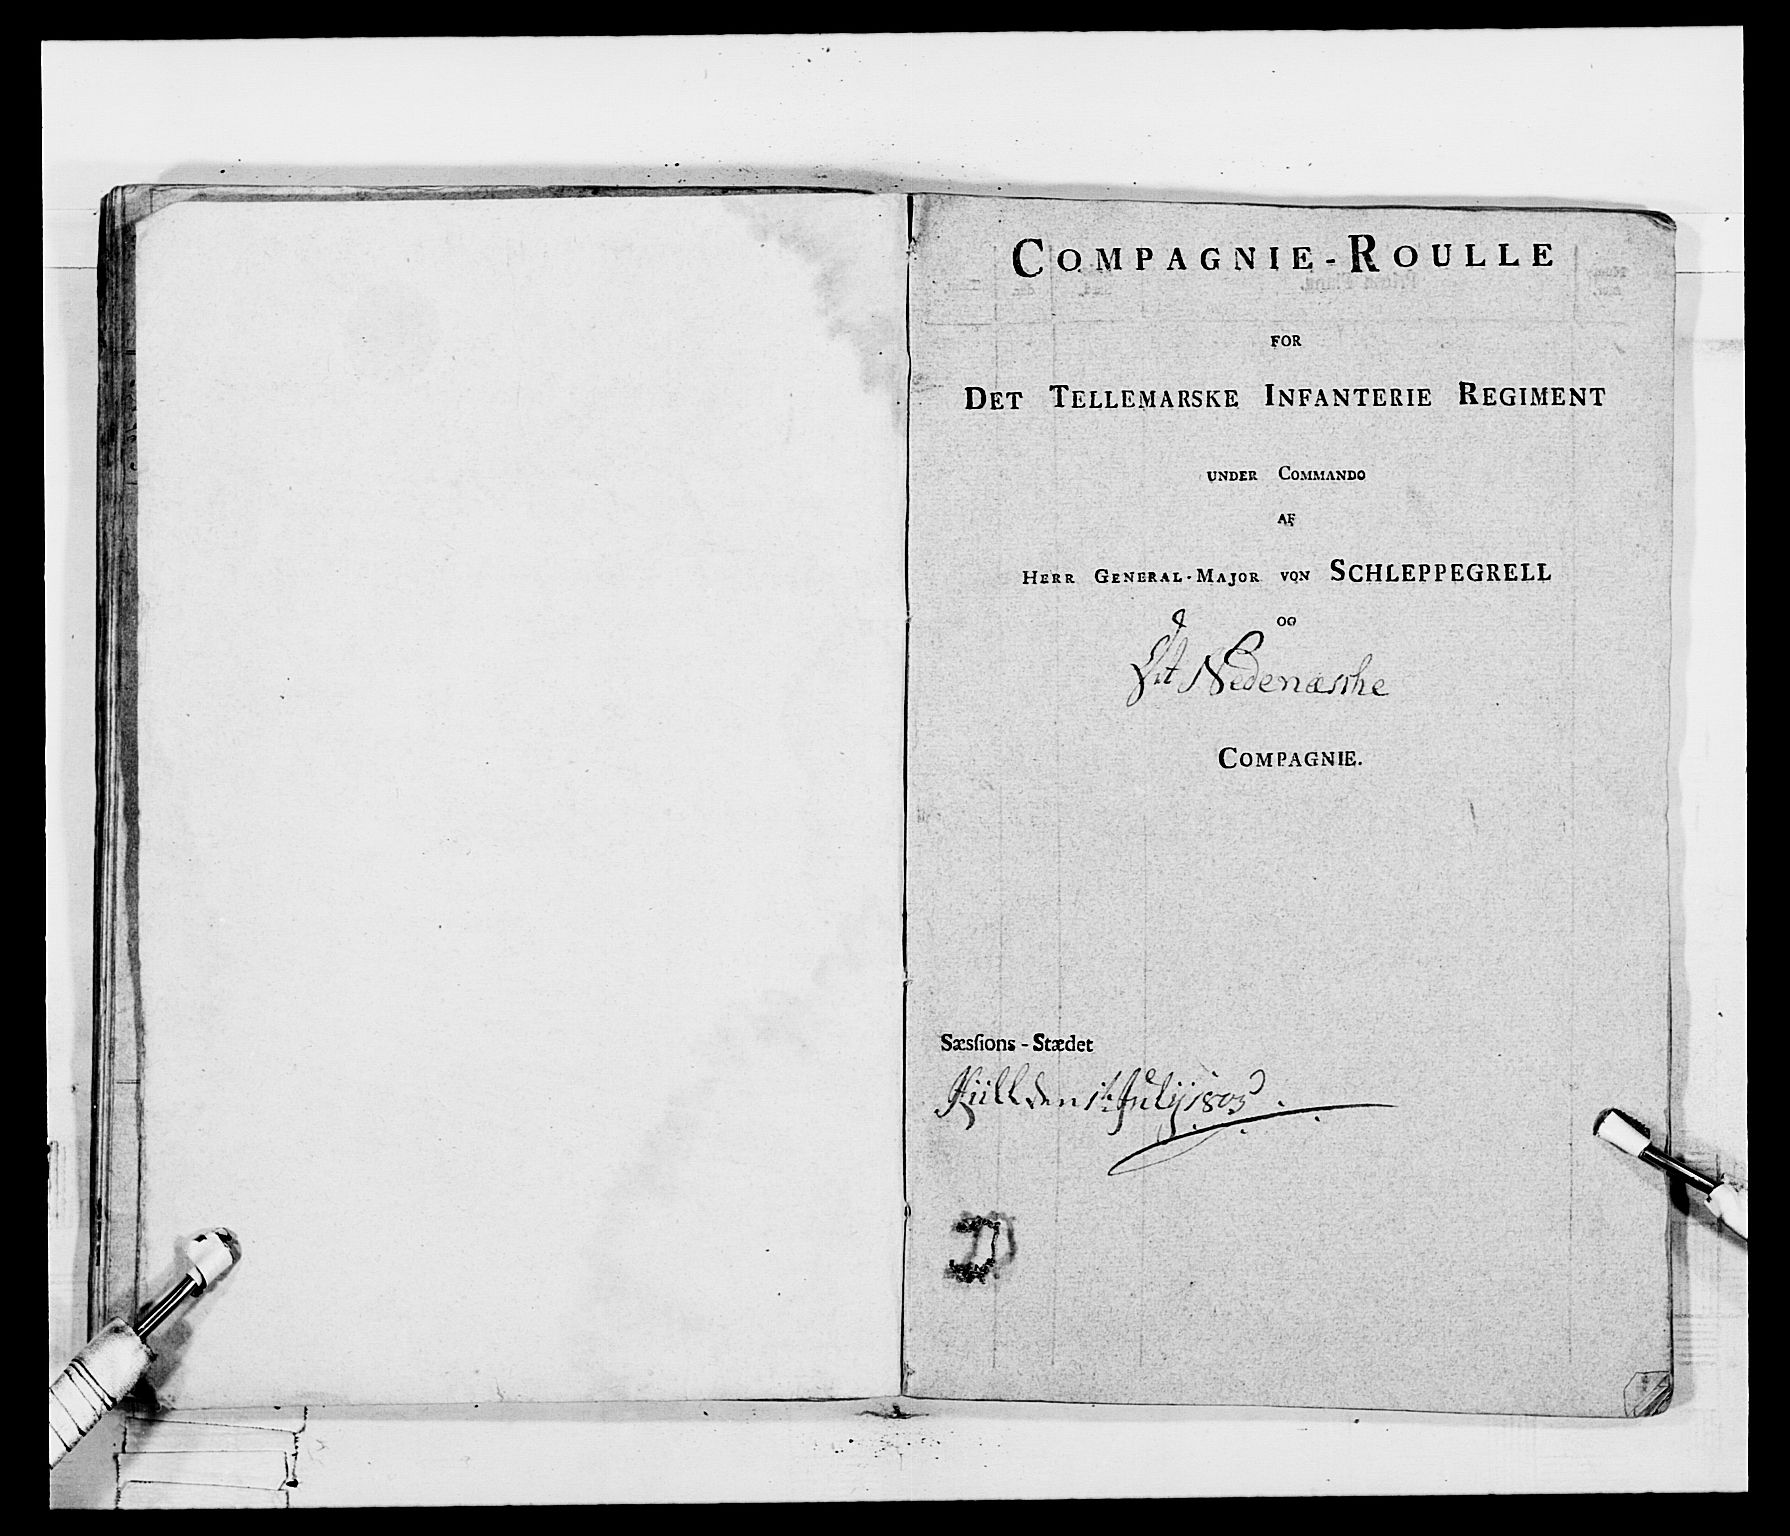 COMPAGNIE-ROULLE
FOR
DET TELLEMARSKE INFANTERIE REGIMENT
UNDER COMMANDO
AF
HERR GENERAL-MAJOR VON SCHLEPPEGRELL
OG
Nedenæsske
COMPAGNIE.
Sæsſions-Stædet
den 1te July 1803